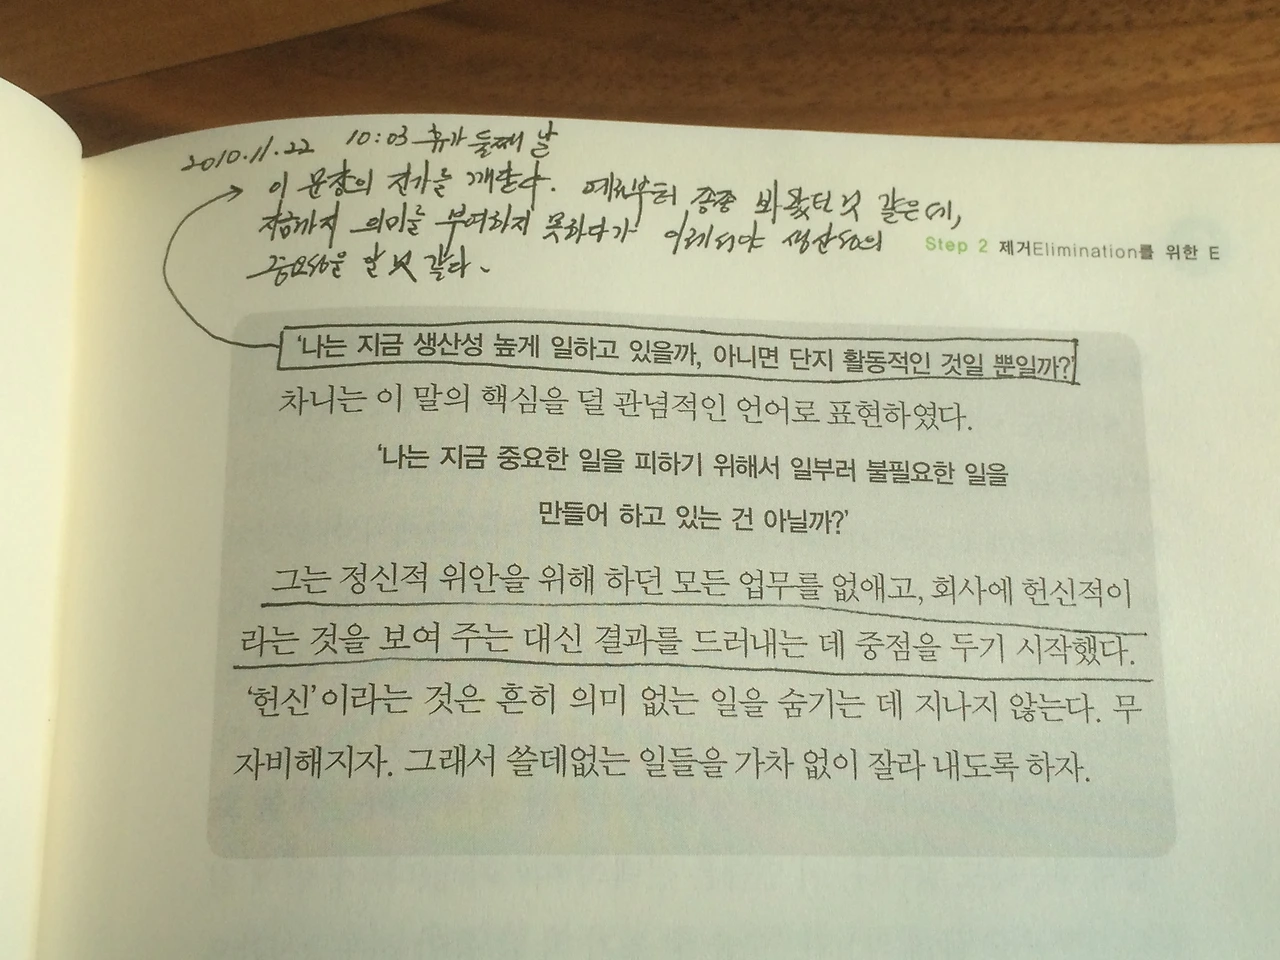 2010.11.22 10:03 휴가 둘째 날
이 문장의 진가를 깨닫다. 예전부터 종종 봐 왔던 것 같은데,
지금까지 의미를 부여하지 못하다가 이제서야 생산성의
중요성을 안 것 같다.
Step 2 제거Elimination를 위한 E
'나는 지금 생산성 높게 일하고 있을까, 아니면 단지 활동적인 것일 뿐일까?'
차니는 이 말의 핵심을 덜 관념적인 언어로 표현하였다.
'나는 지금 중요한 일을 피하기 위해서 일부러 불필요한 일을
만들어 하고 있는 건 아닐까?'
그는 정신적 위안을 위해 하던 모든 업무를 없애고, 회사에 헌신적이
라는 것을 보여 주는 대신 결과를 드러내는 데 중점을 두기 시작했다.
'헌신'이라는 것은 흔히 의미 없는 일을 숨기는 데 지나지 않는다. 무
자비해지자. 그래서 쓸데없는 일들을 가차 없이 잘라 내도록 하자.